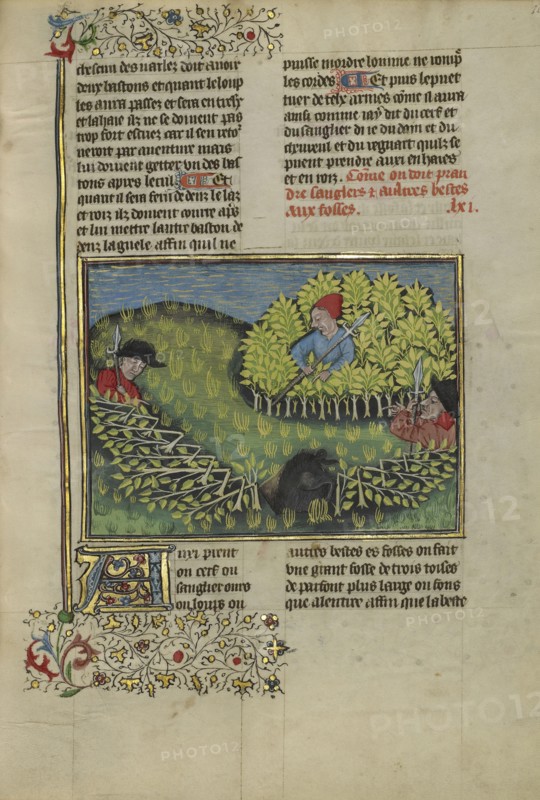 chescun des varlez doit avoir
deux bastons et quant le loup
les aura passez et sera entre eulx
et la haie ilz ne se doivent pas
trop fort escrier car il sen retor
neroit par aventure mais
lui doivent getter un des bas
tons apres le cul Et
quant il sera feru dedenz le laz
et roiz ilz doivent courre apres
et lui mettre lautre baston de
denz la guele affin quil ne
puisse mordre lomme ne rompre
les cordes Et puis lepuet
tuer de telx armes come il aura
ainsi comme iay dit du cerf et
du sanglier di ie du dain et du
chevreul et du regnart quilz se
puent prendre aussi en haies
et en roiz. Come on doit pran
dre sanglers et autres bestes
aux fosses. lxi.
Auxi prent
on cerf ou
sanglier ours
ou loups ou
autres bestes es fosses on fait
une grant fosse de trois toises
de parfont plus large ou fons
que alentree affin que la beste
PHOTO12
PHOTO12
PHOTO12
PHOTO12
PHOTO12